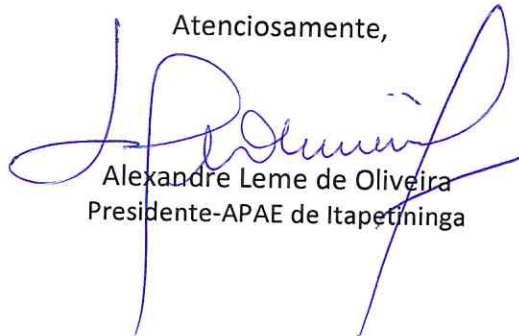 Atenciosamente,
Alexandre Leme de Oliveira
Presidente-APAE de Itapetininga